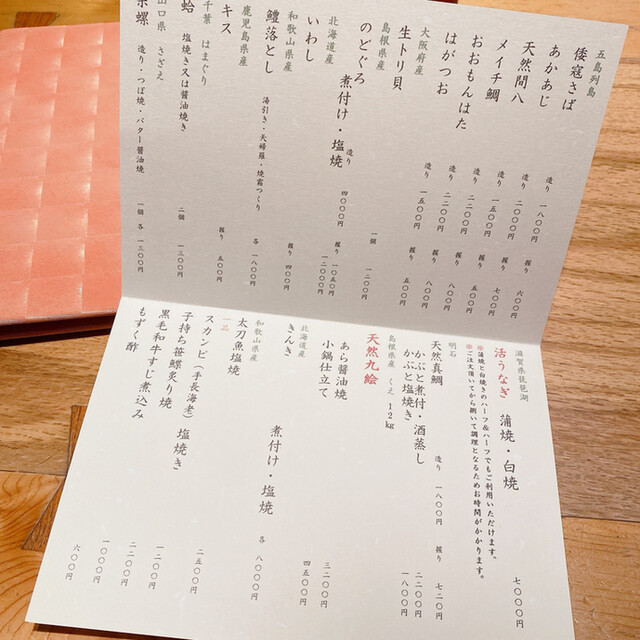 五島列島
倭寇さば 造り 一八〇〇円 握り 六〇〇円
あかあじ 造り 二〇〇〇円 握り 七〇〇円
天然間八 造り 一五〇〇円 握り 五〇〇円
メイチ鯛 造り 二二〇〇円 握り 八〇〇円
おおもんはた 造り 二二〇〇円 握り 八〇〇円
はがつお 造り 一五〇〇円 握り 五〇〇円
大阪府産
生トリ貝 一個 一二〇〇円
島根県産
のどぐろ 煮付け・塩焼 四〇〇〇円
造り 握り 一〇五〇円
北海道産
いわし 造り 一二〇〇円 握り 四〇〇円
和歌山県産
鱧落とし 湯引き・天婦羅・焼霜つくり 各 一八〇〇円
鹿児島県産
キス 握り 五〇〇円
千葉 はまぐり
蛤 塩焼き又は醤油焼き 二個 一三〇〇円
山口県 さざえ
螺 造り・つぼ焼・バター醤油焼 一個 各 一三〇〇円
滋賀県琵琶湖
活うなぎ 蒲焼・白焼 七〇〇〇円
※蒲焼と白焼きのハーフ&ハーフでもご利用いただけます。
※ご注文頂いてから捌いて調理となるためお時間がかかります。
明石
天然真鯛 造り 一八〇〇円 握り 七二〇円
かぶと煮付・酒蒸し 二二〇〇円
かぶと塩焼き 一八〇〇円
島根県産 くえ 12kg
天然九絵
あら醤油焼 三二〇〇円
小鍋仕立て 四五〇〇円
北海道産
きんき 煮付け・塩焼 各 八〇〇〇円
和歌山県産
太刀魚塩焼 二五〇〇円
一品
スカンピ（手長海老）塩焼き 一二〇〇円
子持ち笹鰈炙り焼 二二〇〇円
黒毛和牛すじ煮込み 一〇〇〇円
もずく酢 六〇〇円